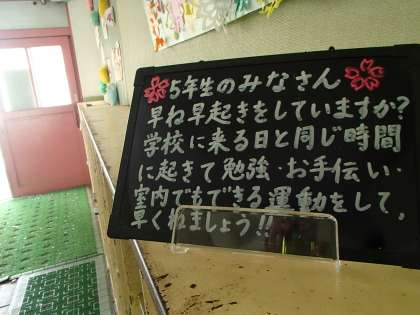 5年生のみなさん
早ね早起きをしていますか?
学校に来る日と同じ時間
に起きて勉強・お手伝い・
室内でもできる運動をして,
早くねましょう!!